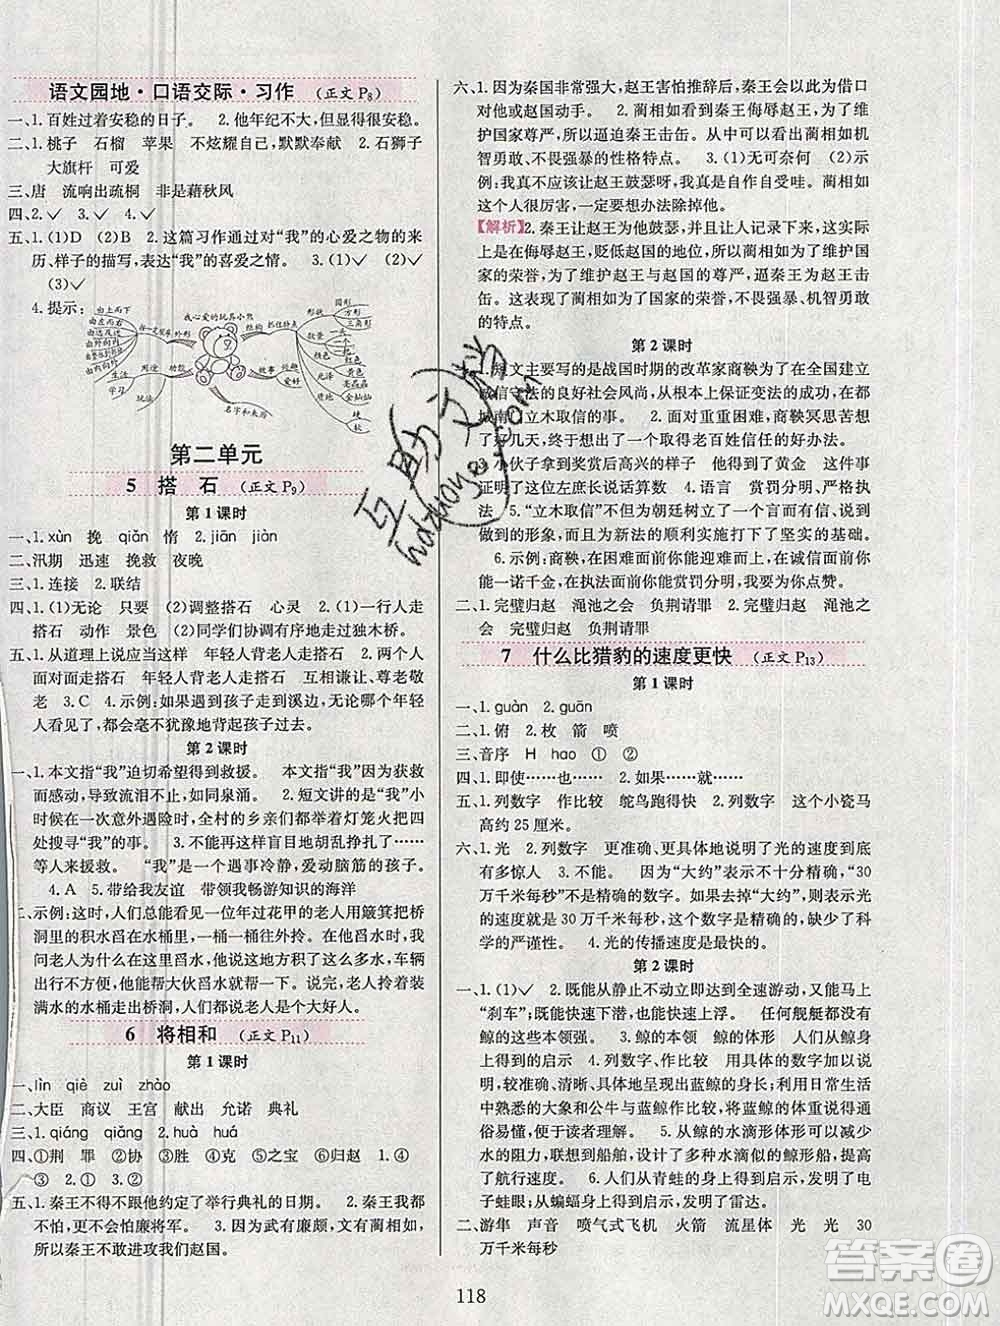 语文园地·口语交际·习作 (正文 P8)
一、1.百姓过着安稳的日子。 2.他年纪不大,但做事很安稳。
二、1.桃子 石榴 苹果 不炫耀自己,默默奉献 2.石狮子
大旗杆 可爱
三、唐 流响出疏桐 非是藉秋风
四、2.✓ 3.✓ 4.✓
五、1.(1)D (2)B 2.这篇习作通过对“我”的心爱之物的来
历、样子的描写,表达“我”的喜爱之情。 3.(1)✓ (2)✓
(3)✓
4.提示:
我心爱的玩具小熊
由上而下
由左而右
由远及近
由外向内
按一定顺序
外形
生活
学习
用途
玩法
功能
名字和来历
故事
爱好
结构
抓住特点
形状
圆形
方形
三角形
软管
颜色
黄色
光泽
质地
第二单元
5 搭 石 (正文 P9)
第 1 课时
一、1.xùn 挽 qiǎn 惰 2.jiān jiàn
二、汛期 迅速 挽救 夜晚
三、1.连接 2.联结
四、1.(1)无论 只要 (2)调整搭石 心灵 2.(1)一行人走
搭石 动作 景色 (2)同学们协调有序地走过独木桥。
五、1.从道理上说应当这样 年轻人背老人走搭石 2.两个人
面对面走搭石 年轻人背老人走搭石 互相谦让、尊老敬
老 3.C 4.示例:如果遇到孩子走到溪边,无论哪个年轻
人看见了,都会毫不犹豫地背起孩子过去。
第 2 课时
一、1.本文指“我”迫切希望得到救援。 本文指“我”因为获救
而感动,导致流泪不止,如同泉涌。 2.短文讲的是“我”
在一次意外遇险时,被全村的人打着灯笼火把四
处搜寻“我”的事。 3.不能再这样盲目地胡乱挣扎了……
等人来援救。 “我”是一个遇事冷静,爱动脑筋的孩子。
4.A 5.带给我友谊 带领我畅游知识的海洋
二、示例:这时,人们总能看见一位年过花甲的老人用簸箕把桥
洞里的积水舀在水桶里,一桶一桶地向外拎。他在舀水。我
问老人怎么在这里舀水,他说桥洞里积了这么多水,车辆
行人都不好走,舀干了能帮大伙舀了能帮大伙
满水的水桶走出桥洞,人们都说老人是个大好人。
6 将相和 (正文 P11)
第 1 课时
一、lìn qiè zuì zhào
二、大臣 商议 王宫 献出 允诺 典礼
三、1.qiáng qiǎng 2.huà huá
四、①荆 罪 ②协 ③胜 ④克 ⑤之宝 ⑥归赵 1.④
⑥ 2.① 3.②
五、1.秦王不得不跟他约定了举行典礼的日期。 2.秦王我都
不怕,更不会怕廉将军。 3.因为武有廉颇,文有蔺相如,
所以秦王不敢进攻我们赵国。
六、1.因为秦国非常强大,赵王害怕推辞后,秦王会以此为借口
对他或赵国动手。 2.蔺相如看到秦王侮辱赵王,为了维
护国家尊严,所以逼迫秦王击缶。 这表现了蔺相如机
智勇敢、不畏强暴的性格特点。 3.(1)无可奈何 (2)示
例:我真不应该让赵王鼓瑟呀,真是自作自受哇。蔺相如
这个人很厉害,一定要想办法除掉他。
【解析】2.秦王让赵王为他鼓瑟,并且让人记录下来,这实际
上是在侮辱赵王,贬低赵国的地位,所以蔺相如为了维护国
家的荣誉,为了维护赵王与赵国的尊严,逼秦王为赵王击
缶。这表现了蔺相如为了国家的荣誉,不畏强暴、机智勇敢
的特点。
第 2 课时
一、1.短文主要写的是战国时期的改革家商鞅为了在全国建立
诚信守法的良好社会风尚,从根本上保证变法的成功,在都
城南门立木取信的事。 2.面对重重困难,商鞅冥思苦想
了好几天,终于想出了一个取得老百姓信任的好办法。
3.小伙子拿到奖赏后高兴的样子 他得了黄金 这件事
证明了左庶长说话算数 4.语言 赏罚分明、严格执
法 5.“立木取信”不但为朝廷树立了言而有信、执法如山
的形象,而且为新法的顺利实施打下了坚实的基础。
6.示例:商鞅,在困难面前你能迎难而上,在诚信面前你
能一诺千金,在执法面前你能赏罚分明,我为你点赞。
二、1.完璧归赵 渑池之会 负荆请罪 2.完璧归赵 渑池之
会 完璧归赵 负荆请罪
7 什么比猎豹的速度更快 (正文 P13)
第 1 课时
一、1.guàn 2.guān
二、1.俯 2.枚 箭 喷
三、音序 H hao ① ②
四、1.即使……也…… 2.如果……就……
五、1.列数字 作比较 鸵鸟跑得快 2.列数字 这个小瓷马
高约 25 厘米。
六、1.光 2.列数字 更准确、更具体地说明了光的速度到底
有多惊人 3.不能。 因为“大约”表示不十分精确,“30
万千米每秒”不是精确的数字。如果去掉“大约”,就变成光
的速度就是 30 万千米每秒,这个数字是精确的,缺少了科
学的严谨性。 4.光的传播速度是最快的。
第 2 课时
一、1.(1)✓ 2.既能从静止不动立即达到全速游动,又能马上
“刹车”;既能快速下潜,也能快速上浮。 任何舰艇都没
有这么强的本领。 3.鲸的本领 鲸的体形 人们从鲸的
身上得到的启示 4.列数字、作比较 用具体的数字来说
明,较准确、清晰、具体地呈现出了蓝鲸的身长;与人们比
较熟悉的大象和公牛与蓝鲸的体重作比较,将蓝鲸的体重通
俗易懂,便于读者理解。 5.蓝鲸的水滴形体形可以减少水
的阻力,联想到船舶,设计了多种外形像水滴的鲸形船,提
高了航行速度。 6.人们从青蛙的身上得到启示,发明了电
子蛙眼;从蝙蝠身上得到启示,发明了雷达。
二、游隼 声音 喷气式飞机 火箭 流星体 光 光 30
万千米每秒
118
互助文档
hdzuoye.com
答案圈
MXQE.COM